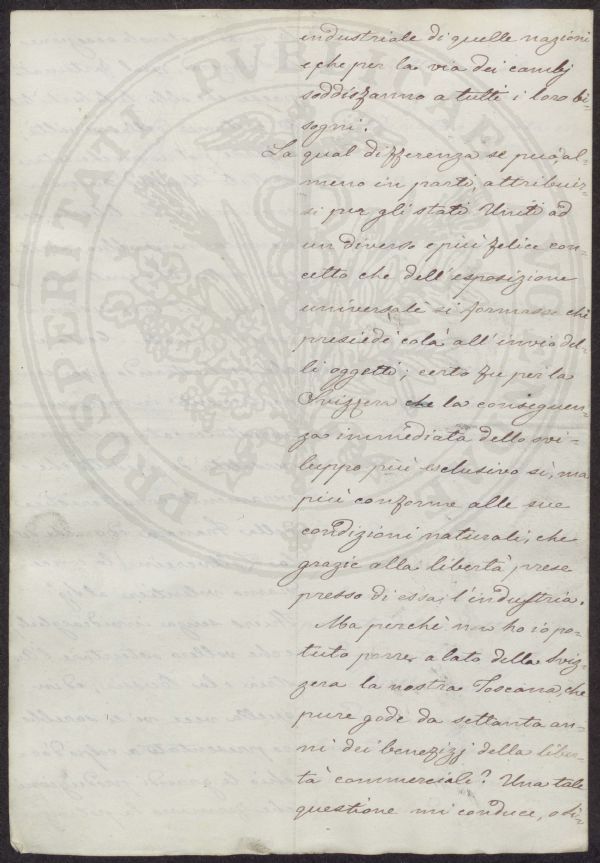 industriale di quelle nazioni
e che per la via dei cambj
soddisfanno a tutti i loro bi-
sogni.
La qual differenza se può, al-
meno in parte, attribuir-
si per gli stati Uniti ad
un diverso e più felice con-
cetto che dell'esposizione
universale si formasse chi
presiedè colà all'invio del-
li oggetti; certo fu per la
Svizzera che la conseguen-
za immediata dello svi-
luppo più esclusivo sì, ma
più conforme alle sue
condizioni naturali, che
grazie alla libertà prese
presso di essa, l'industria.
Ma perchè non ho io po-
tuto porre, a lato della Sviz-
zera la nostra Toscana, che
pure gode da settanta an-
ni dei benefizj della liber-
tà commerciale? Una tale
questione mi conduce, o Si-
PROSPERITATI PVBLICAE